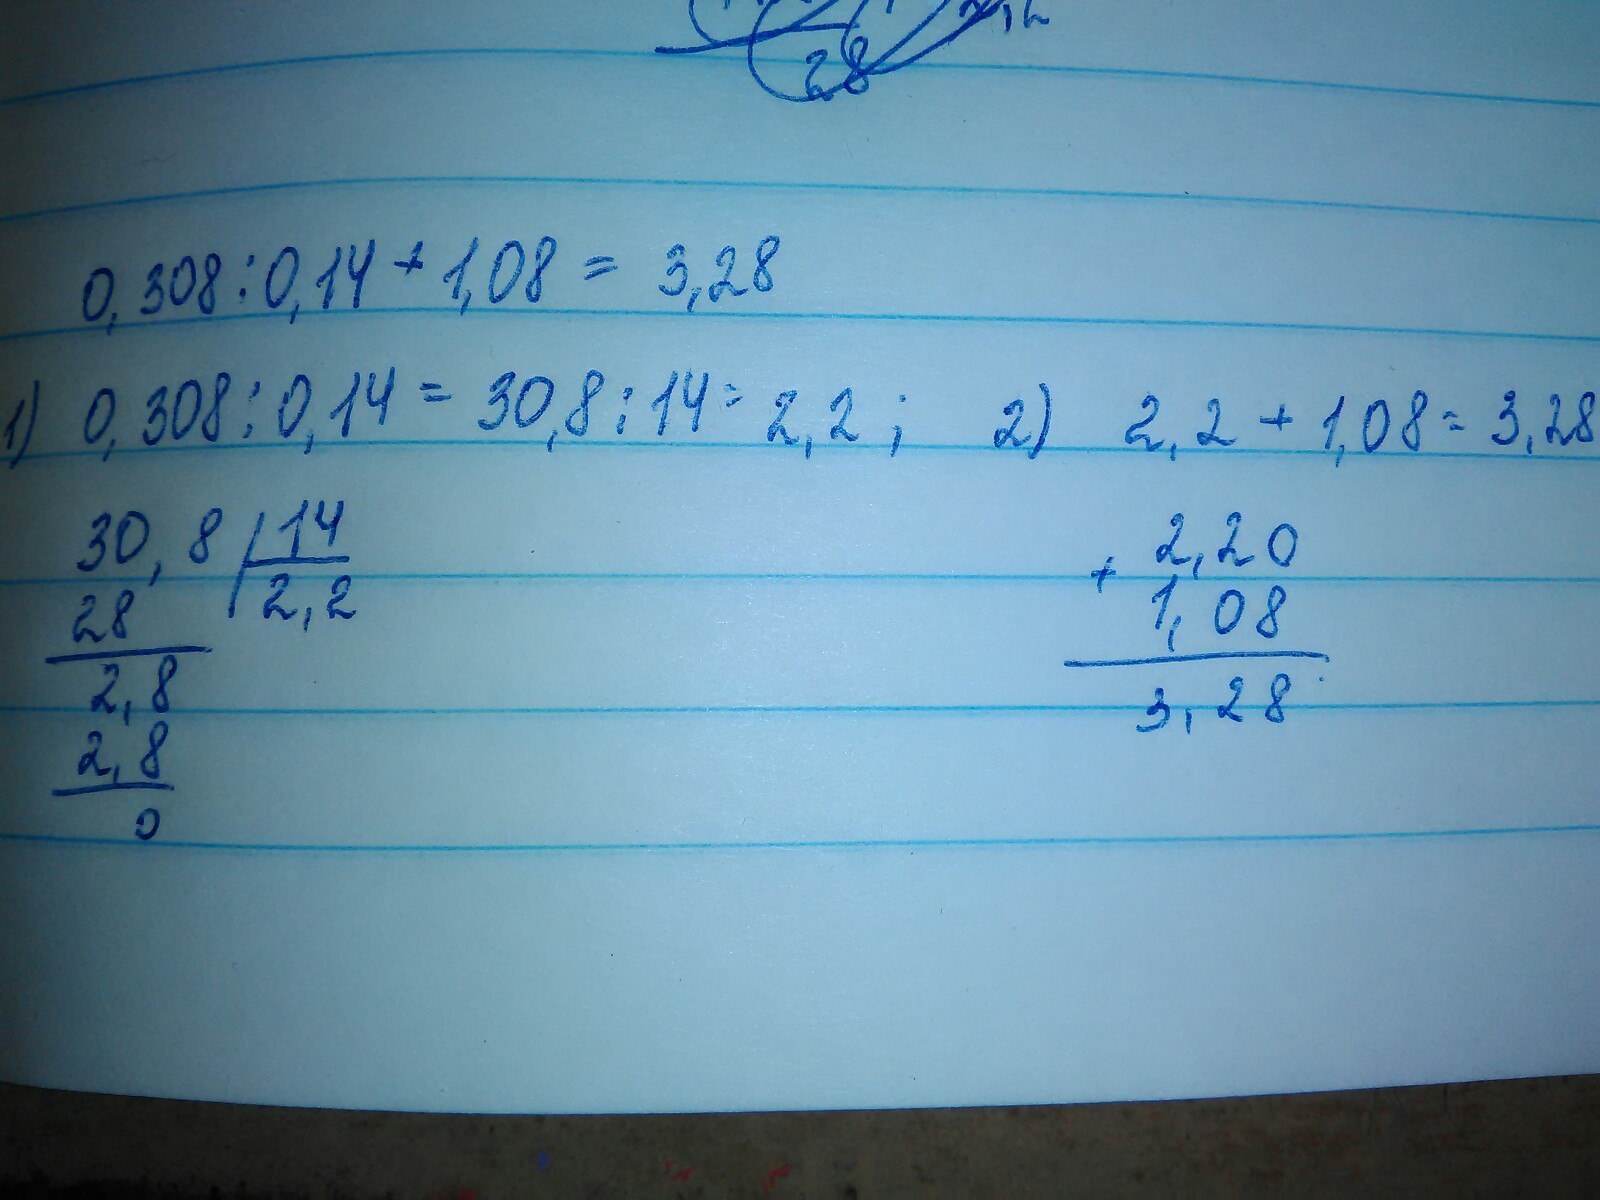 28
0,308:0,14+1,08=3,28
1) 0,308:0,14=30,8:14=2,2; 2) 2,2+1,08=3,28
30,8 14
28 2,2
2,8
2,8
0
+ 2,20
1,08
3,28